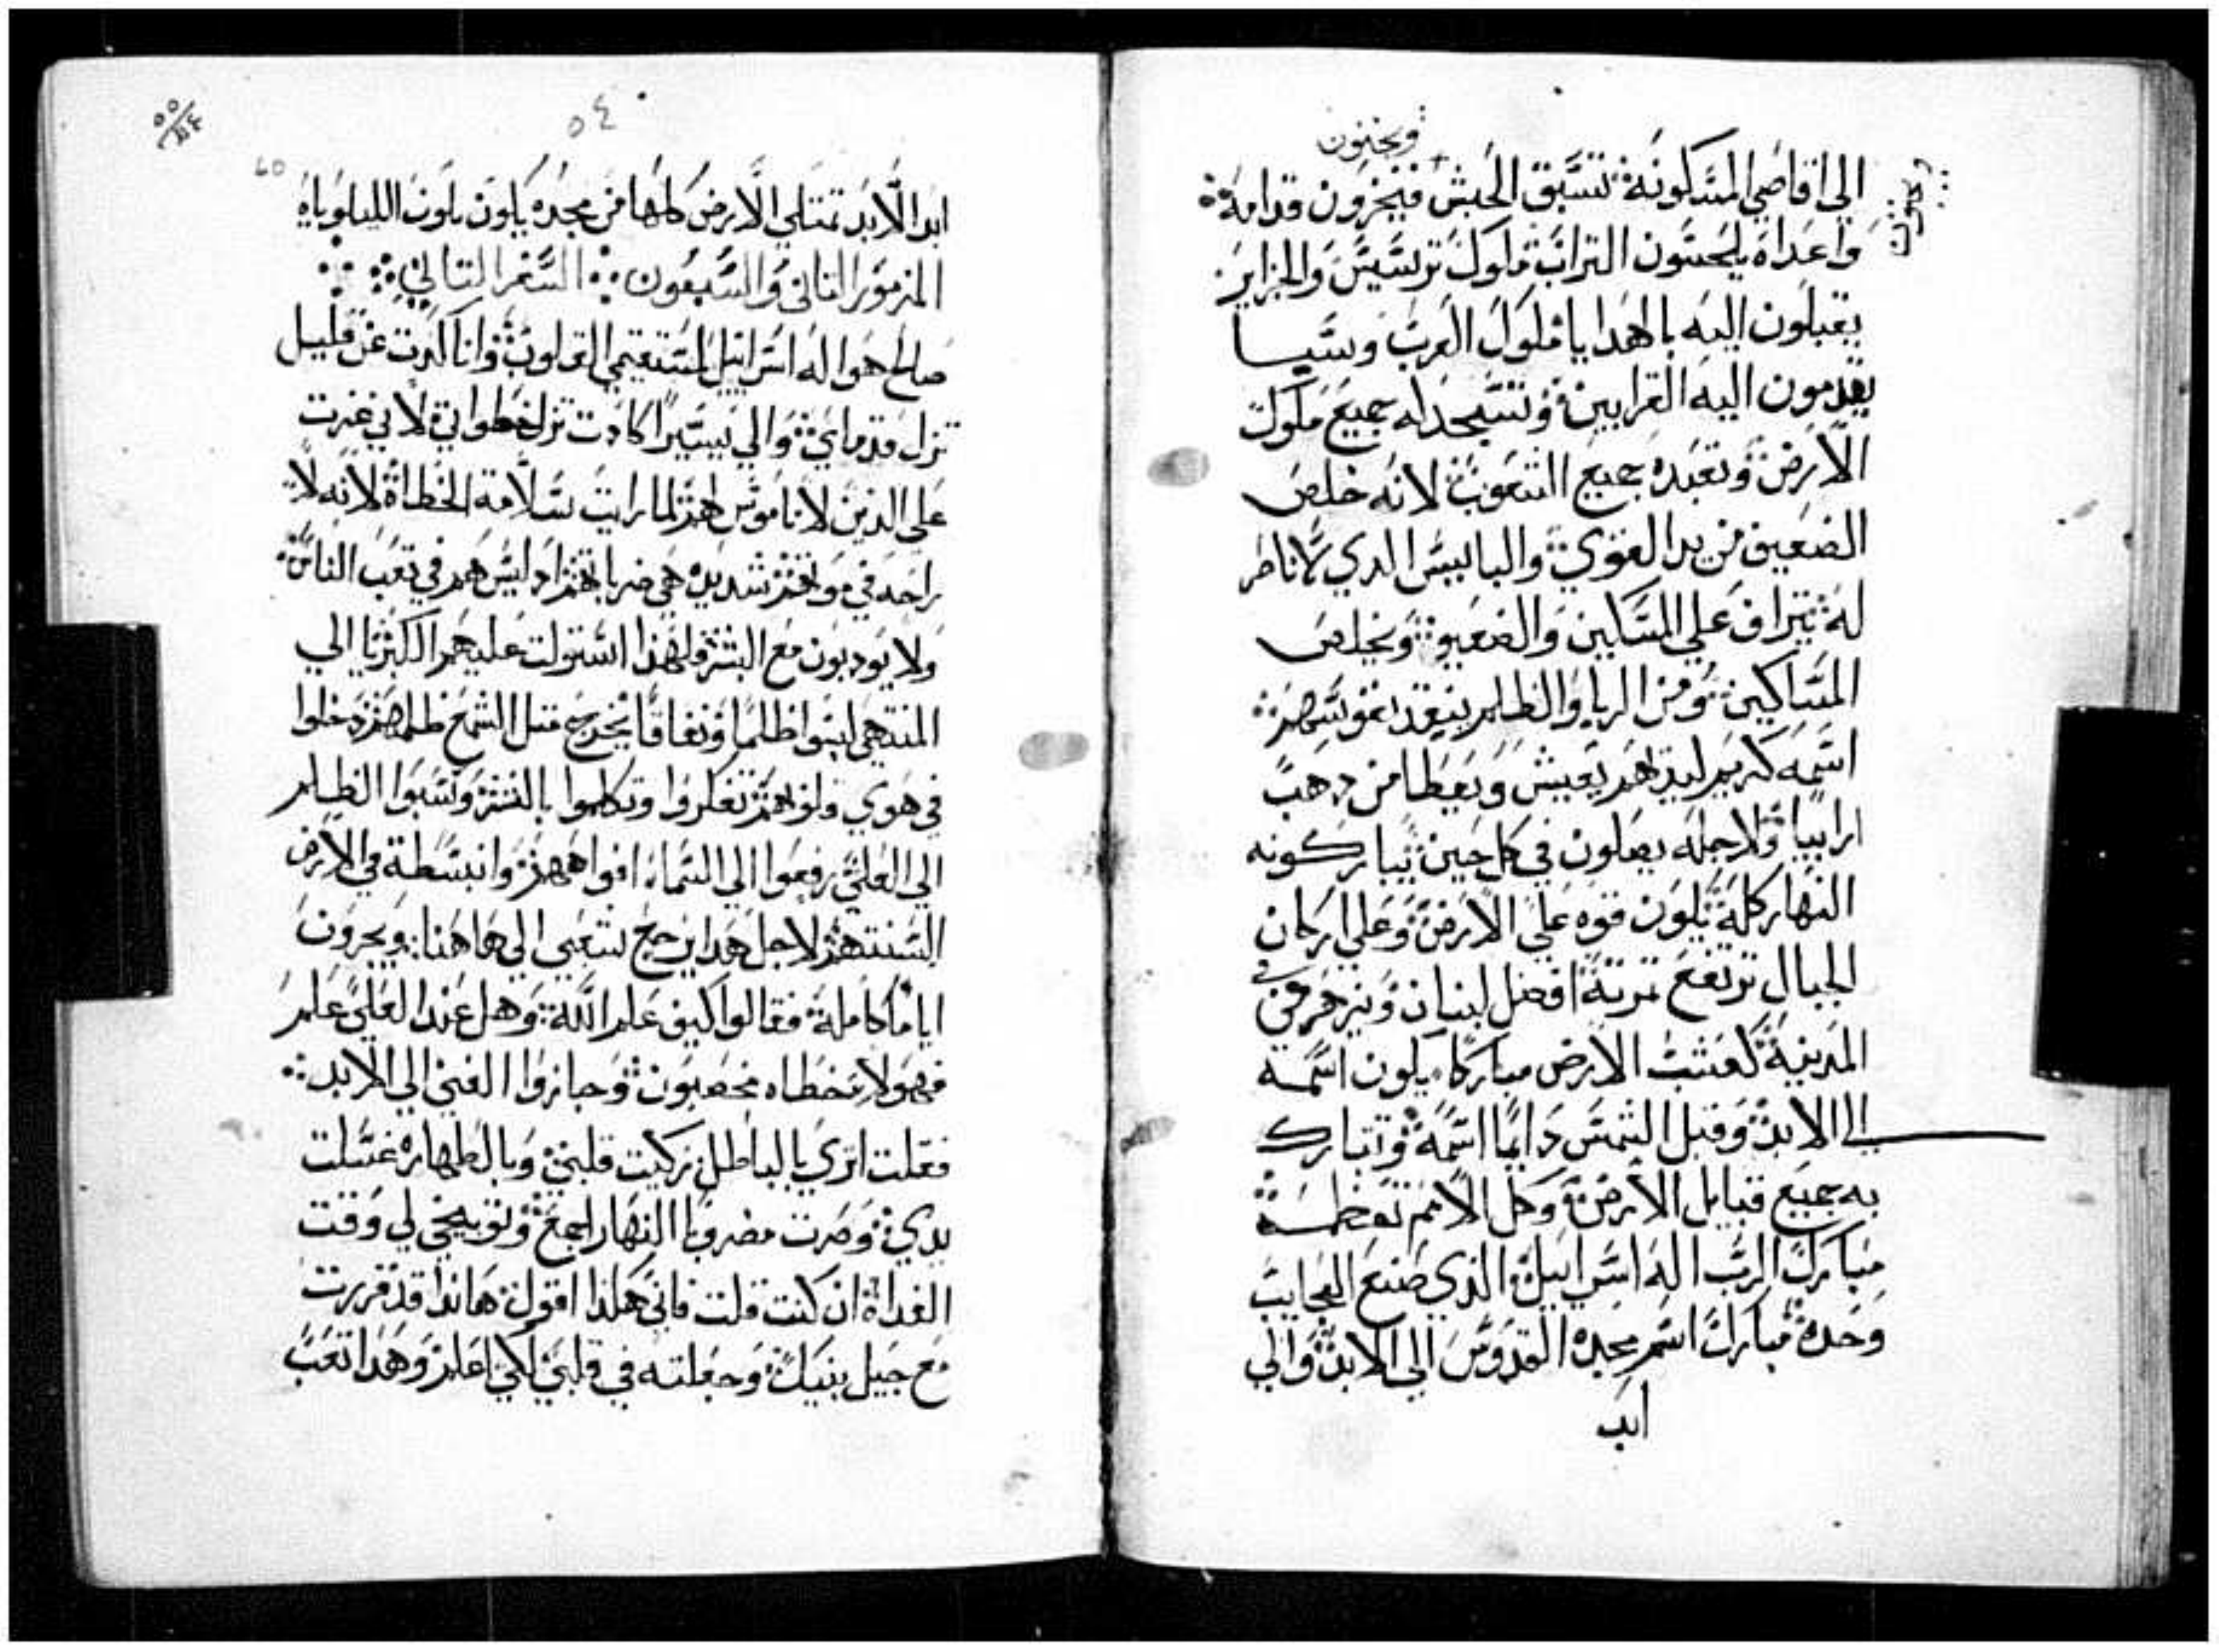 ويجثون
الي اقاصي المسكونه تسبق الحبش فيخرون قدامه
واعداه يلحسون التراب ملوك ترسيس والجزاير
يقبلون اليه بالهدايا ملوك العرب وسبا
يقدمون اليه القرابين وتسجد له جميع ملوك
الارض وتعبده جميع الشعوب لانه خلص
الضعيف من يد القوي والباييس الدي لا ناصر
له يتراف علي المسكين والضعيف ويخلص
المساكين ومن الربا والظلم ينقد نفوسهم
اسمه كريم لديهم يعيش ويعطا من دهب
ارابيا ولاجله يصلون في كل حين يباركونه
النهار كله تكون قوه علي الارض وعلي اركان
الجبال ترتفع ثمرته افضل لبنان ويزهر في
المدينة كعشب الارض مباركا يكون اسمه
الي الابد وقبل الشمس دايما اسمه وتتبارك
به جميع قبايل الارض وكل الامم تعظمه
مبارك الرب اله اسراييل الذي صنع العجايب
وحده مبارك اسم مجده القدوس الي الابد والي
ابد
٥٤
ابد الابد تمتلي الارض كلها من مجده يكون يكون الليلوياه
المزمور الثاني والسبعون السفر الثالث
صالح هو اله اسراييل لمستقيمي القلوب وانا كادت عن قليل
تزل قدماي والي يسيرا كادت تزل خطواتي لاني غرت
علي الذين لا ناموس لهم لما رايت سلامة الخطاة لانه لا
راحه في موتهم شديده هي ضرباتهم اد ليس هم في تعب الناس
ولا يودبون مع البشر ولهذا استولت عليهم الكبريا الي
المنتهي لبسوا ظلما ونفاقا يخرج مثل الشحم ظلمهم دخلوا
في هوي قلوبهم تفكروا وتكلموا بالشر ونسبوا الظلم
الي العلي رفعوا الي السماء افواههم وانبسطة في الارض
السنتهم لاجل هدا يرجع شعبي الي هاهنا ويجدون
اياما كاملة فقالوا كيف علم الله وهل عند العلي علم
فهولا خطاه مخصبون وحازوا الغني الي الابد
فقلت اتري بالباطل زكيت قلبي وبالطهاره غسلت
يدي وصرت مضروبا النهار اجمع وتوبيخي لي وقت
الغداة ان كنت قلت فاني هكذا اقول هاندا قد قررت
مع جيل بنيك وجعلته في قلبي لكي اعلم وهدا تعب